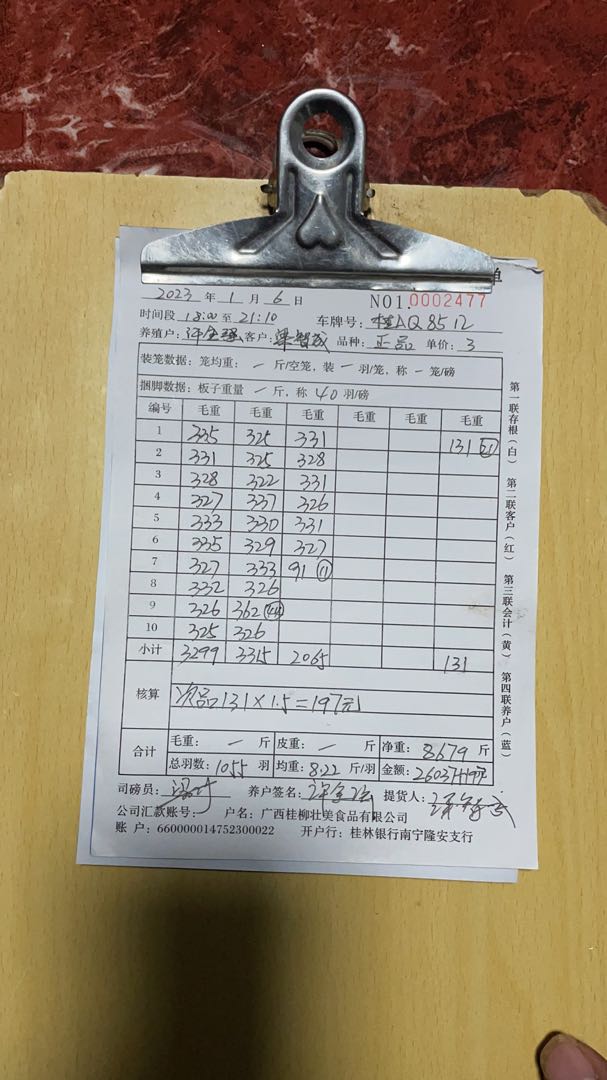 单
2023 年 1 月 6 日 NO1. 0002477
时间段 18:00 至 21:10 车牌号: 桂AQ8512
养殖户: 许金强 客户: 梁智成 品种: 正品 单价: 3
装笼数据: 笼均重: 一 斤/空笼, 装 一 羽/笼, 称 一 笼/磅
捆脚数据: 板子重量 一 斤, 称 40 羽/磅
编号 毛重 毛重 毛重 毛重 毛重 毛重
1 335 325 331 131 (21)
2 331 325 328
3 328 322 331
4 327 337 326
5 333 330 331
6 335 329 327
7 327 333 91 (11)
8 332 326
9 326 362 (44)
10 325 326
小计 3299 3315 2065 131
核算 次品131×1.5=197元
合计 毛重: 一 斤 皮重: 一 斤 净重: 8679 斤
总羽数: 1055 羽 均重: 8.22 斤/羽 金额: 26037+197元
司磅员: 养户签名: 许金强 提货人:
公司汇款账号: 户名: 广西桂柳壮美食品有限公司
账 户: 660000014752300022 开户行: 桂林银行南宁隆安支行
第一联存根(白) 第二联客户(红) 第三联会计(黄) 第四联养户(蓝)